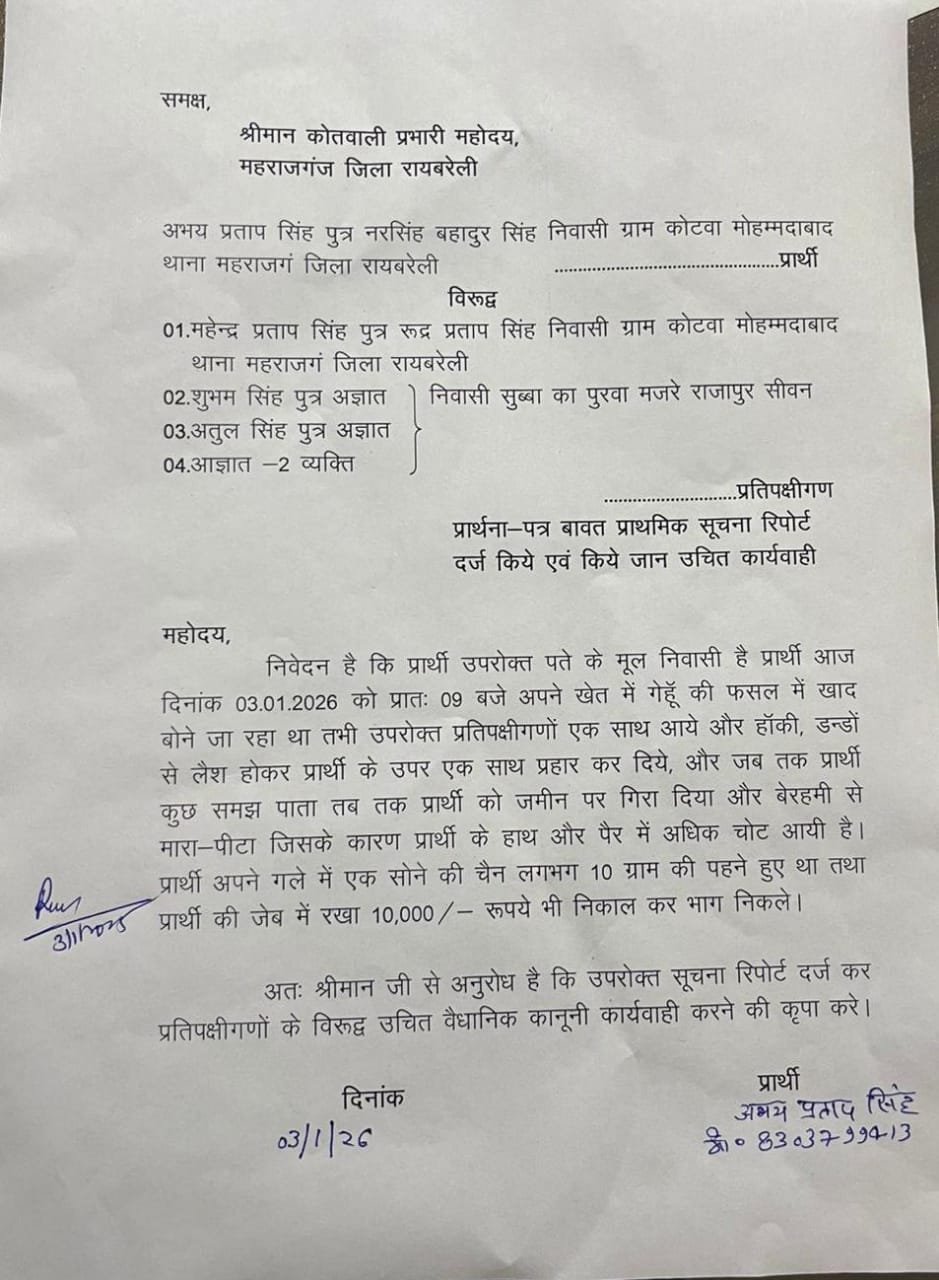 समक्ष,
श्रीमान कोतवाली प्रभारी महोदय,
महराजगंज जिला रायबरेली
अभय प्रताप सिंह पुत्र नरसिंह बहादुर सिंह निवासी ग्राम कोटवा मोहम्मदाबाद
थाना महराजगं जिला रायबरेली ................................................प्रार्थी
विरूद्व
01.महेन्द्र प्रताप सिंह पुत्र रूद्र प्रताप सिंह निवासी ग्राम कोटवा मोहम्मदाबाद
थाना महराजगं जिला रायबरेली
02.शुभम सिंह पुत्र अज्ञात } निवासी सुब्बा का पुरवा मजरे राजापुर सीवन
03.अतुल सिंह पुत्र अज्ञात
04.आज्ञात –2 व्यक्ति
............................प्रतिपक्षीगण
प्रार्थना–पत्र बावत प्राथमिक सूचना रिपोर्ट
दर्ज किये एवं किये जान उचित कार्यवाही
महोदय,
निवेदन है कि प्रार्थी उपरोक्त पते के मूल निवासी है प्रार्थी आज
दिनांक 03.01.2026 को प्रातः 09 बजे अपने खेत में गेहूॅ की फसल में खाद
बोने जा रहा था तभी उपरोक्त प्रतिपक्षीगणों एक साथ आये और हॉकी, डन्डों
से लैश होकर प्रार्थी के उपर एक साथ प्रहार कर दिये, और जब तक प्रार्थी
कुछ समझ पाता तब तक प्रार्थी को जमीन पर गिरा दिया और बेरहमी से
मारा–पीटा जिसके कारण प्रार्थी के हाथ और पैर में अधिक चोट आयी है।
प्रार्थी अपने गले में एक सोने की चैन लगभग 10 ग्राम की पहने हुए था तथा
प्रार्थी की जेब में रखा 10,000/– रूपये भी निकाल कर भाग निकले।
अतः श्रीमान जी से अनुरोध है कि उपरोक्त सूचना रिपोर्ट दर्ज कर
प्रतिपक्षीगणों के विरूद्व उचित वैधानिक कानूनी कार्यवाही करने की कृपा करे।
दिनांक
03/1/26
प्रार्थी
अभय प्रताप सिंह
8303799413